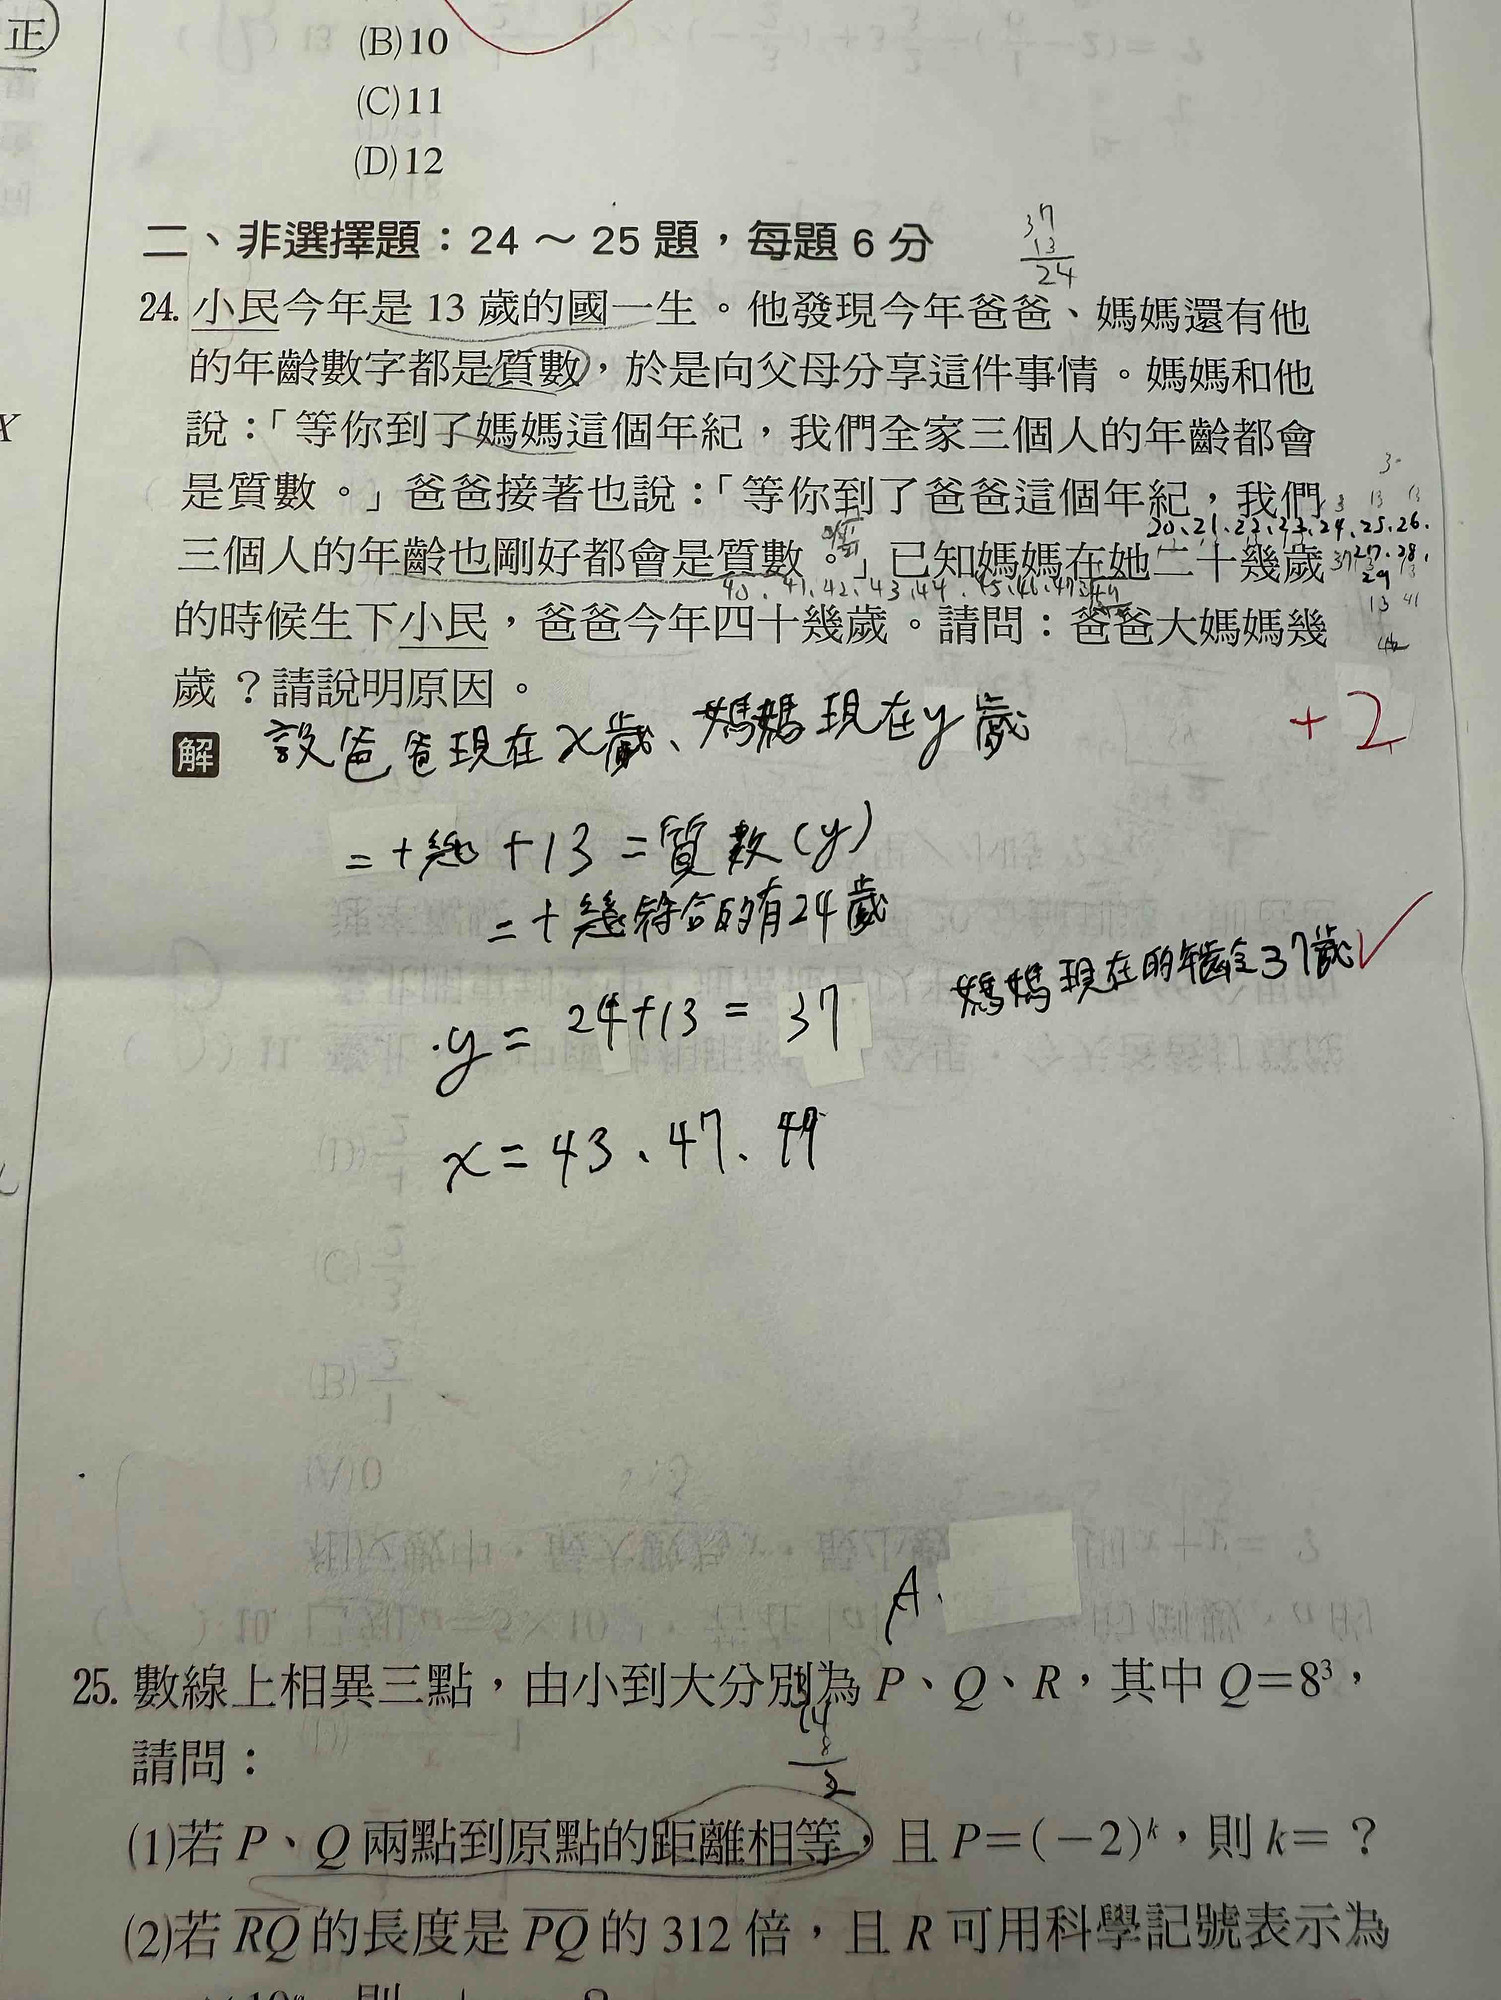 正
(B)10
(C)11
(D)12
二、非選擇題：24～25題，每題6分
37
13
24
24. 小民今年是 13 歲的國一生。他發現今年爸爸、媽媽還有他
的年齡數字都是質數，於是向父母分享這件事情。媽媽和他
說：「等你到了媽媽這個年紀，我們全家三個人的年齡都會
是質數。」爸爸接著也說：「等你到了爸爸這個年紀，我們
20、21、22、23、24、25、26、
三個人的年齡也剛好都會是質數。」已知媽媽在她二十幾歲
27、28、
29
40、41、42、43、44、45、46、47
的時候生下小民，爸爸今年四十幾歲。請問：爸爸大媽媽幾
歲？請說明原因。
+2
解 設爸爸現在x歲、媽媽現在y歲
二十幾+13=質數(y)
二十幾符合的有24歲
媽媽現在的年齡是37歲
y=24+13=37
x=43、47、49
A.
25. 數線上相異三點，由小到大分別為 P、Q、R，其中 Q=8³，
請問：
14
8
(1)若 P、Q 兩點到原點的距離相等，且 P=(-2)ᵏ，則 k=？
(2)若 RQ 的長度是 PQ 的 312 倍，且 R 可用科學記號表示為